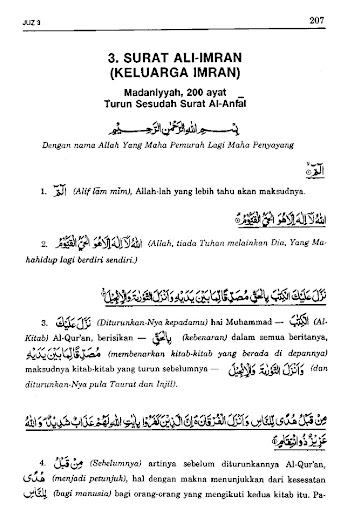 JUZ 3
207
3. SURAT ALI-IMRAN
(KELUARGA IMRAN)
Madaniyyah, 200 ayat
Turun Sesudah Surat Al-Anfal
بِسْمِ اللهِ الرَّحْمٰنِ الرَّحِيْمِ
Dengan nama Allah Yang Maha Pemurah Lagi Maha Penyayang
الٓمّٓ
1. الٓمّٓ (Alif lām mīm), Allah-lah yang lebih tahu akan maksudnya.
اللهُ لَآ اِلٰهَ اِلَّا هُوَ الْحَيُّ الْقَيُّوْمُ
2. اللهُ لَآ اِلٰهَ اِلَّا هُوَ الْحَيُّ الْقَيُّوْمُ (Allah, tiada Tuhan melainkan Dia, Yang Ma-
hahidup lagi berdiri sendiri.)
نَزَّلَ عَلَيْكَ الْكِتٰبَ بِالْحَقِّ مُصَدِّقًا لِّمَا بَيْنَ يَدَيْهِ وَاَنْزَلَ التَّوْرٰىةَ وَالْاِنْجِيْلَ
3. نَزَّلَ عَلَيْكَ (Diturunkan-Nya kepadamu) hai Muhammad — الْكِتٰبَ (Al-
Kitab) Al-Qur'an, berisikan — بِالْحَقِّ (kebenaran) dalam semua beritanya,
مُصَدِّقًا لِّمَا بَيْنَ يَدَيْهِ (membenarkan kitab-kitab yang berada di depannya)
maksudnya kitab-kitab yang turun sebelumnya — وَاَنْزَلَ التَّوْرٰىةَ وَالْاِنْجِيْلَ (dan
diturunkan-Nya pula Taurat dan Injil).
مِنْ قَبْلُ هُدًى لِّلنَّاسِ وَاَنْزَلَ الْفُرْقَانَ اِنَّ الَّذِيْنَ كَفَرُوْا بِاٰيٰتِ اللهِ لَهُمْ عَذَابٌ شَدِيْدٌ وَاللهُ
عَزِيْزٌ ذُو انْتِقَامٍ
4. مِنْ قَبْلُ (Sebelumnya) artinya sebelum diturunkannya Al-Qur'an,
هُدًى (menjadi petunjuk), hal dengan makna menunjukkan dari kesesatan
لِّلنَّاسِ (bagi manusia) bagi orang-orang yang mengikuti kedua kitab itu. Pa-